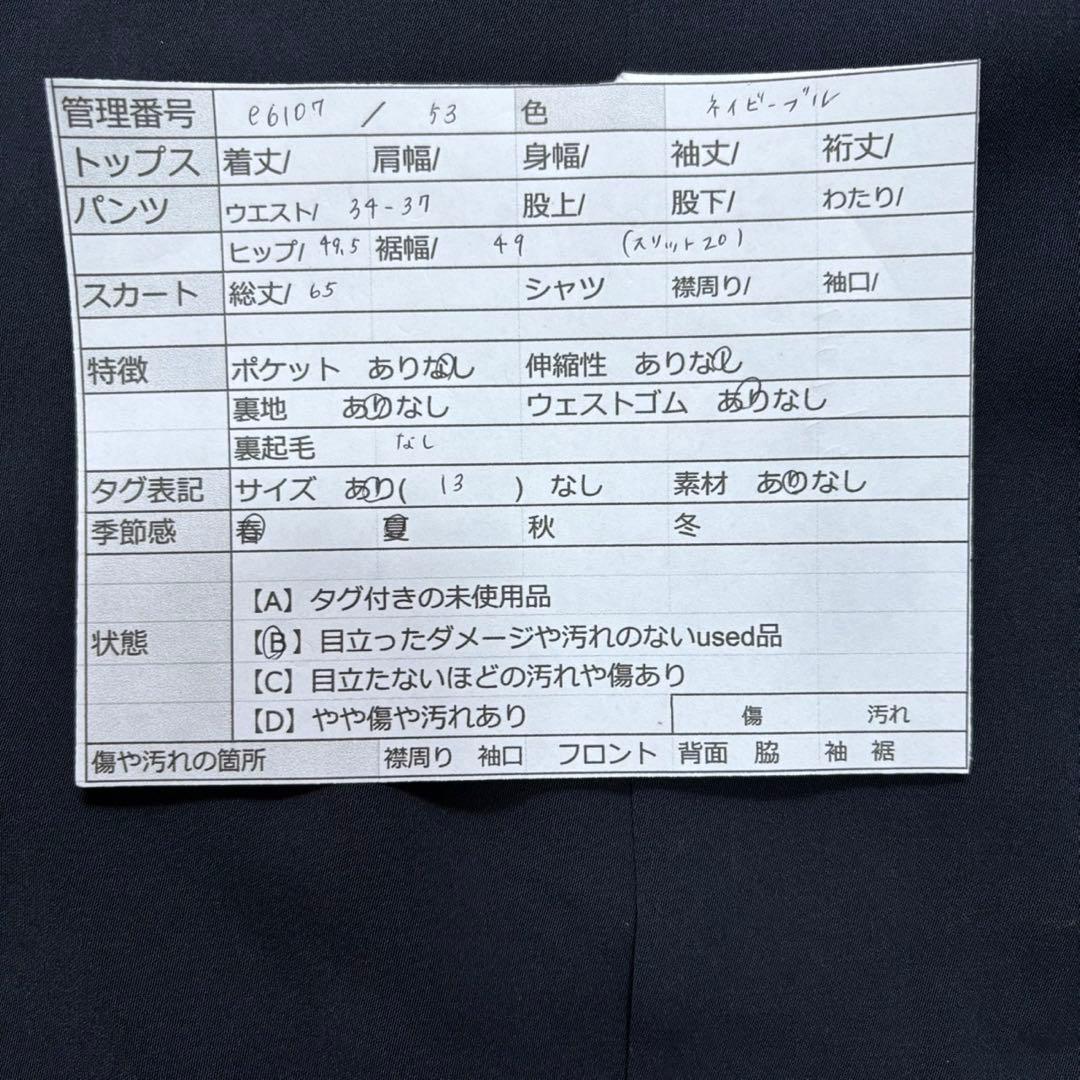 管理番号 e6107 / 53 色 ネイビーブル
トップス 着丈/ 肩幅/ 身幅/ 袖丈/ 裄丈/
パンツ ウエスト/ 34-37 股上/ 股下/ わたり/
ヒップ/ 49.5 裾幅/ 49 (スリット20)
スカート 総丈/ 65 シャツ 襟周り/ 袖口/
特徴 ポケット ありなし 伸縮性 ありなし
裏地 ありなし ウェストゴム ありなし
裏起毛 なし
タグ表記 サイズ あり( 13 ) なし 素材 ありなし
季節感 春 夏 秋 冬
【A】タグ付きの未使用品
状態 【B】目立ったダメージや汚れのないused品
【C】目立たないほどの汚れや傷あり
【D】やや傷や汚れあり 傷 汚れ
傷や汚れの箇所 襟周り 袖口 フロント 背面 脇 袖 裾